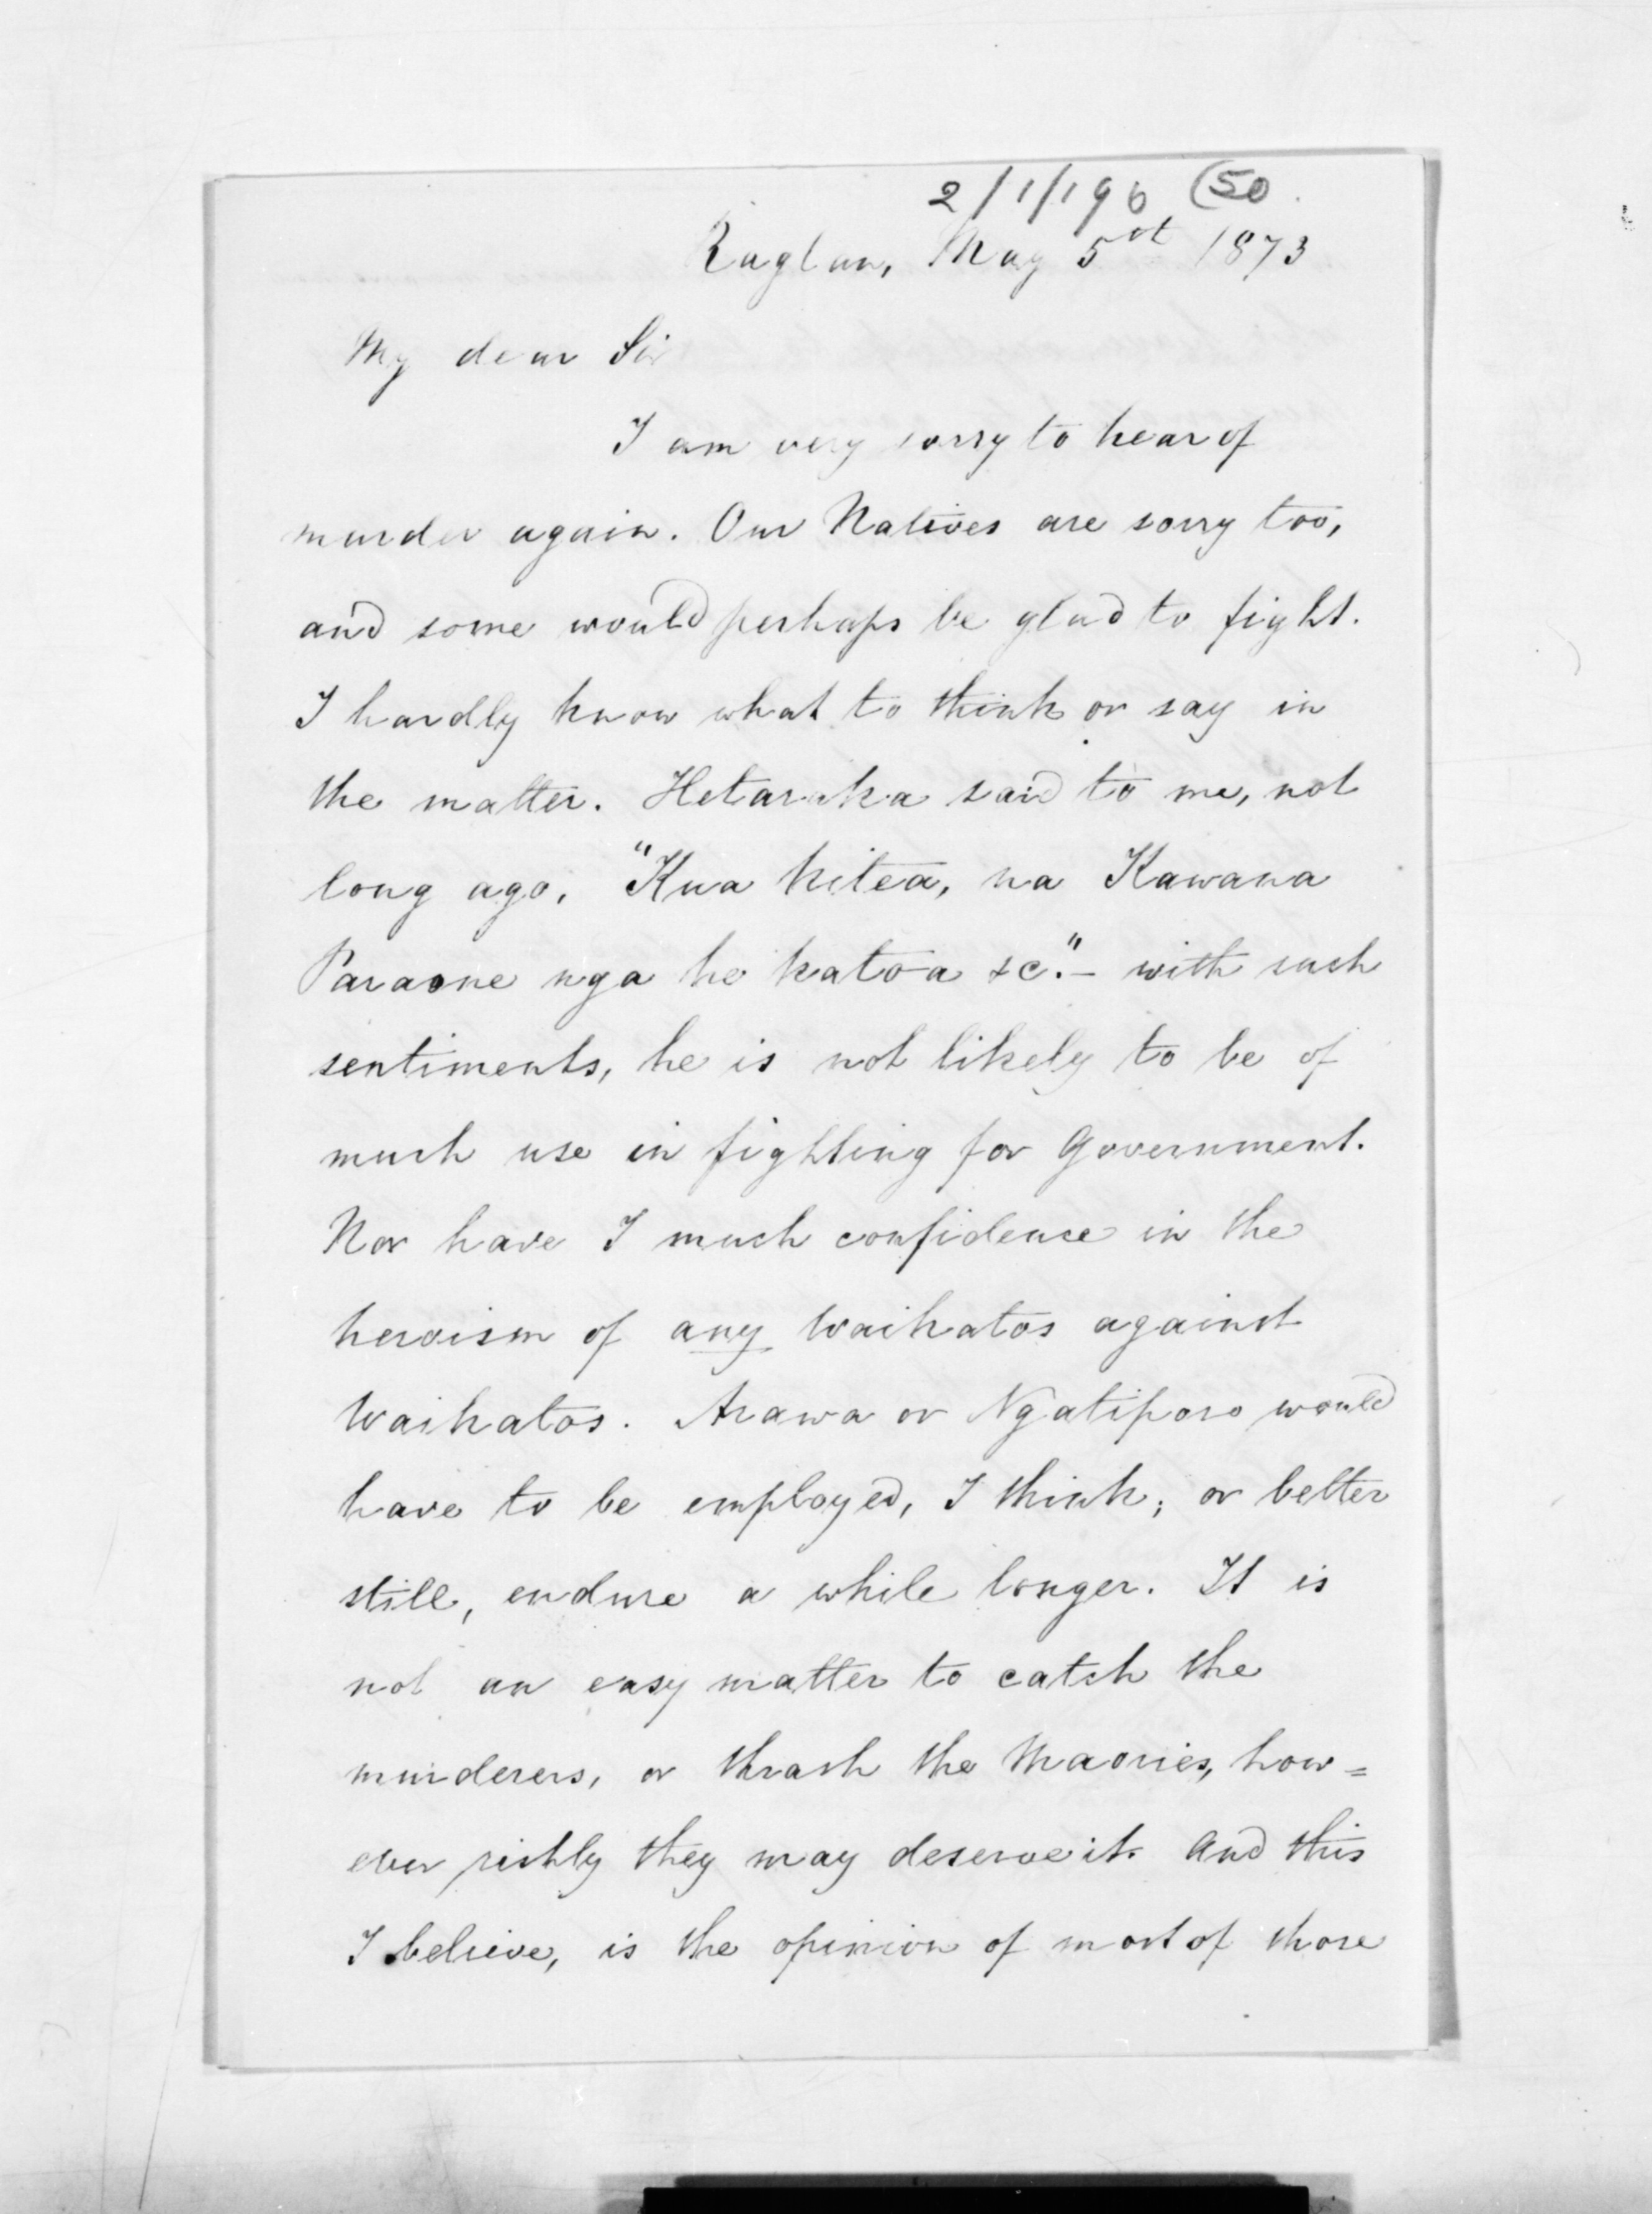 2/1/196 (50
Raglan, May 5th 1873
My dear Sir
I am very sorry to hear of
murder again. Our Natives are sorry too,
and some would perhaps be glad to fight.
I hardly know what to think or say in
the matter. Hetaraka said to me, not
long ago, "Kua kitea, na Kawana
Paraone nga he katoa &c." – with such
sentiments, he is not likely to be of
much use in fighting for Government.
Nor have I much confidence in the
heroism of any Waikatos against
Waikatos. Arawa or Ngatiporo would
have to be employed, I think; or better
still, endure a while longer. It is
not an easy matter to catch the
murderers, or thrash the Maories, how=
ever richly they may deserve it. And this
I believe, is the opinion of most of those